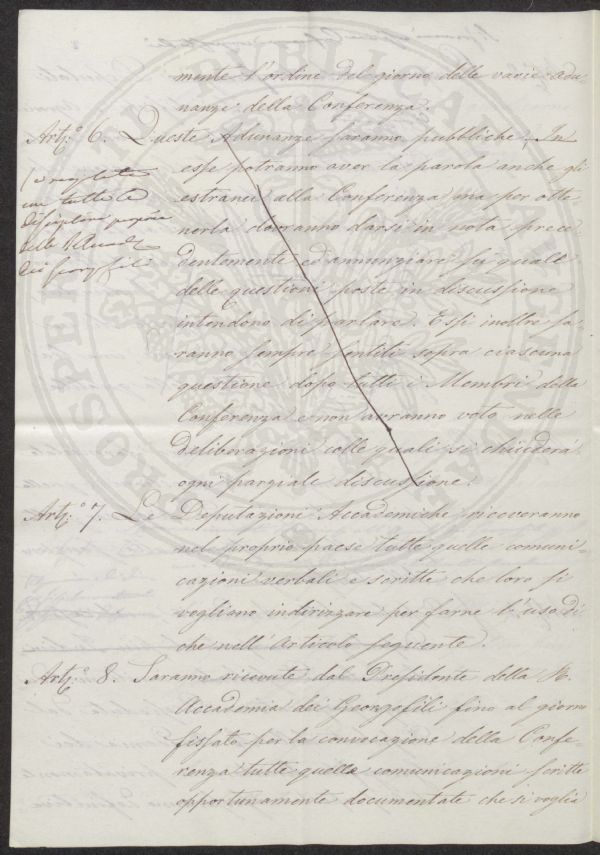 mente l'ordine del giorno delle varie adu-
nanze della Conferenza.
Artº. 6. Queste Adunanze saranno pubbliche. In
esse potranno aver la parola anche gli
estranei alla Conferenza ma per otte-
nerla dovranno darsi in nota prece-
dentemente ed annunziare su quale
delle questioni poste in discussione
intendono di parlare. Essi inoltre sa-
ranno sempre sentiti sopra ciascuna
questione dopo tutti i Membri della
Conferenza e non avranno voto nelle
deliberazioni colle quali si chiuderà
ogni parziale discussione.
con tutta la
disciplina
delle
dei Georgofili
Artº. 7. Le Deputazioni Accademiche riceveranno
nel proprio paese tutte quelle comuni-
cazioni verbali e scritte che loro si
vogliano indirizzare per farne l'uso di
che nell'Articolo seguente.
Artº. 8. Saranno ricevute dal Presidente della R.
Accademia dei Georgofili fino al giorno
fissato per la convocazione della Confe-
renza tutte quelle comunicazioni scritte
opportunamente documentate che si voglia